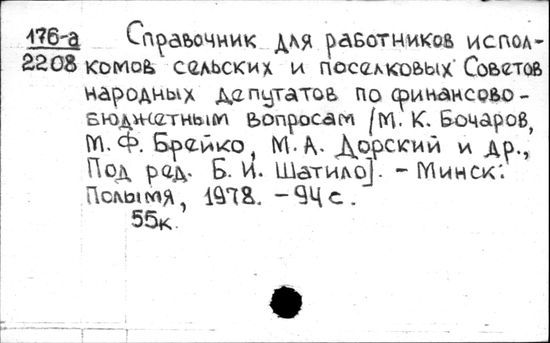 176-а Справочник для работников испол-
2208 комов сельских и поселковых Советов
народных депутатов по финансово-
бюджетным вопросам /М. К. Бочаров,
М. Ф. Брейко, М. А. Дорский и др.,
Под ред. Б. И. Шатило]. - Минск:
Полымя, 1978. - 94 с.
55к.